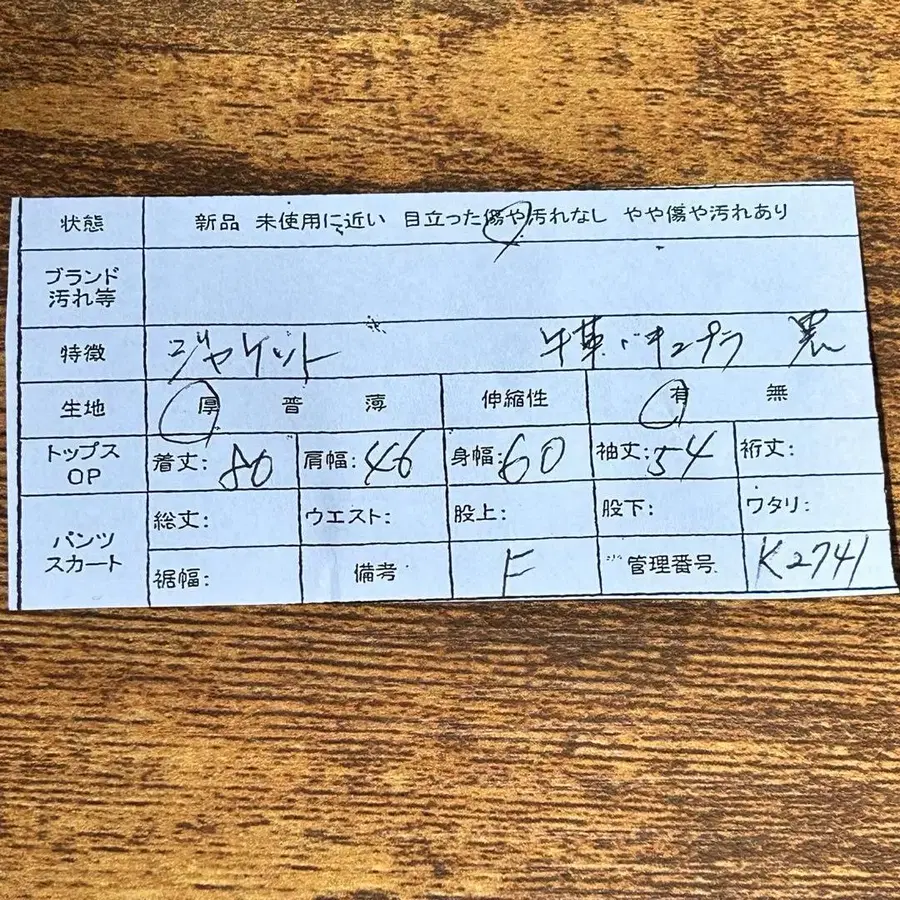 状態 新品 未使用に近い 目立った傷や汚れなし やや傷や汚れあり
ブランド
汚れ等
特徴 ジャケット 牛革・キュプラ 黒
生地 厚 普 薄 伸縮性 有 無
トップス
OP
着丈: 80 肩幅: 46 身幅: 60 袖丈: 54 裄丈:
パンツ
スカート
総丈: ウエスト: 股上: 股下: ワタリ:
裾幅: 備考 F 管理番号 K2741